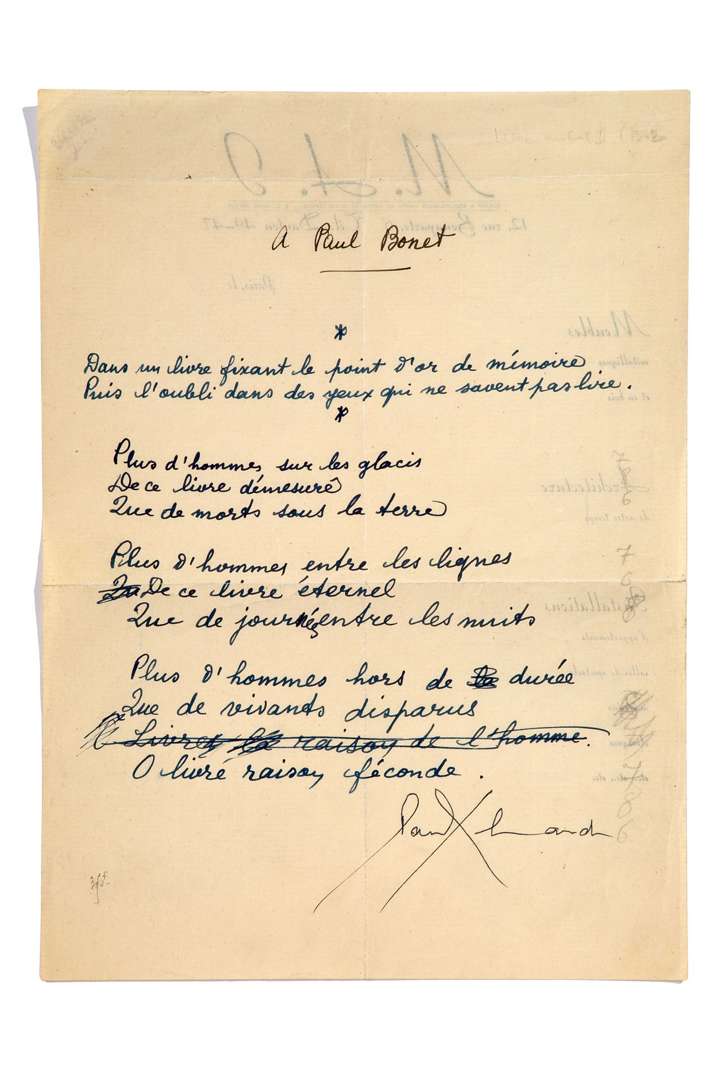 A Paul Bonet
*
Dans un livre fixant le point d'or de mémoire
Puis l'oubli dans des yeux qui ne savent pas lire.
*
Plus d'hommes sur les glacis
De ce livre démesuré
Que de morts sous la terre
Plus d'hommes entre les lignes
De ce livre éternel
Que de journées entre les nuits
Plus d'hommes hors de la durée
Que de vivants disparus
Livre la raison de l'homme.
O livre raison féconde.
Paul Eluard
M.A.I
12, rue Bonaparte
Paris, le
Meubles
métalliques
et en bois
Architecture
de notre temps
Installations
d'appartements
7
6
7
8
6